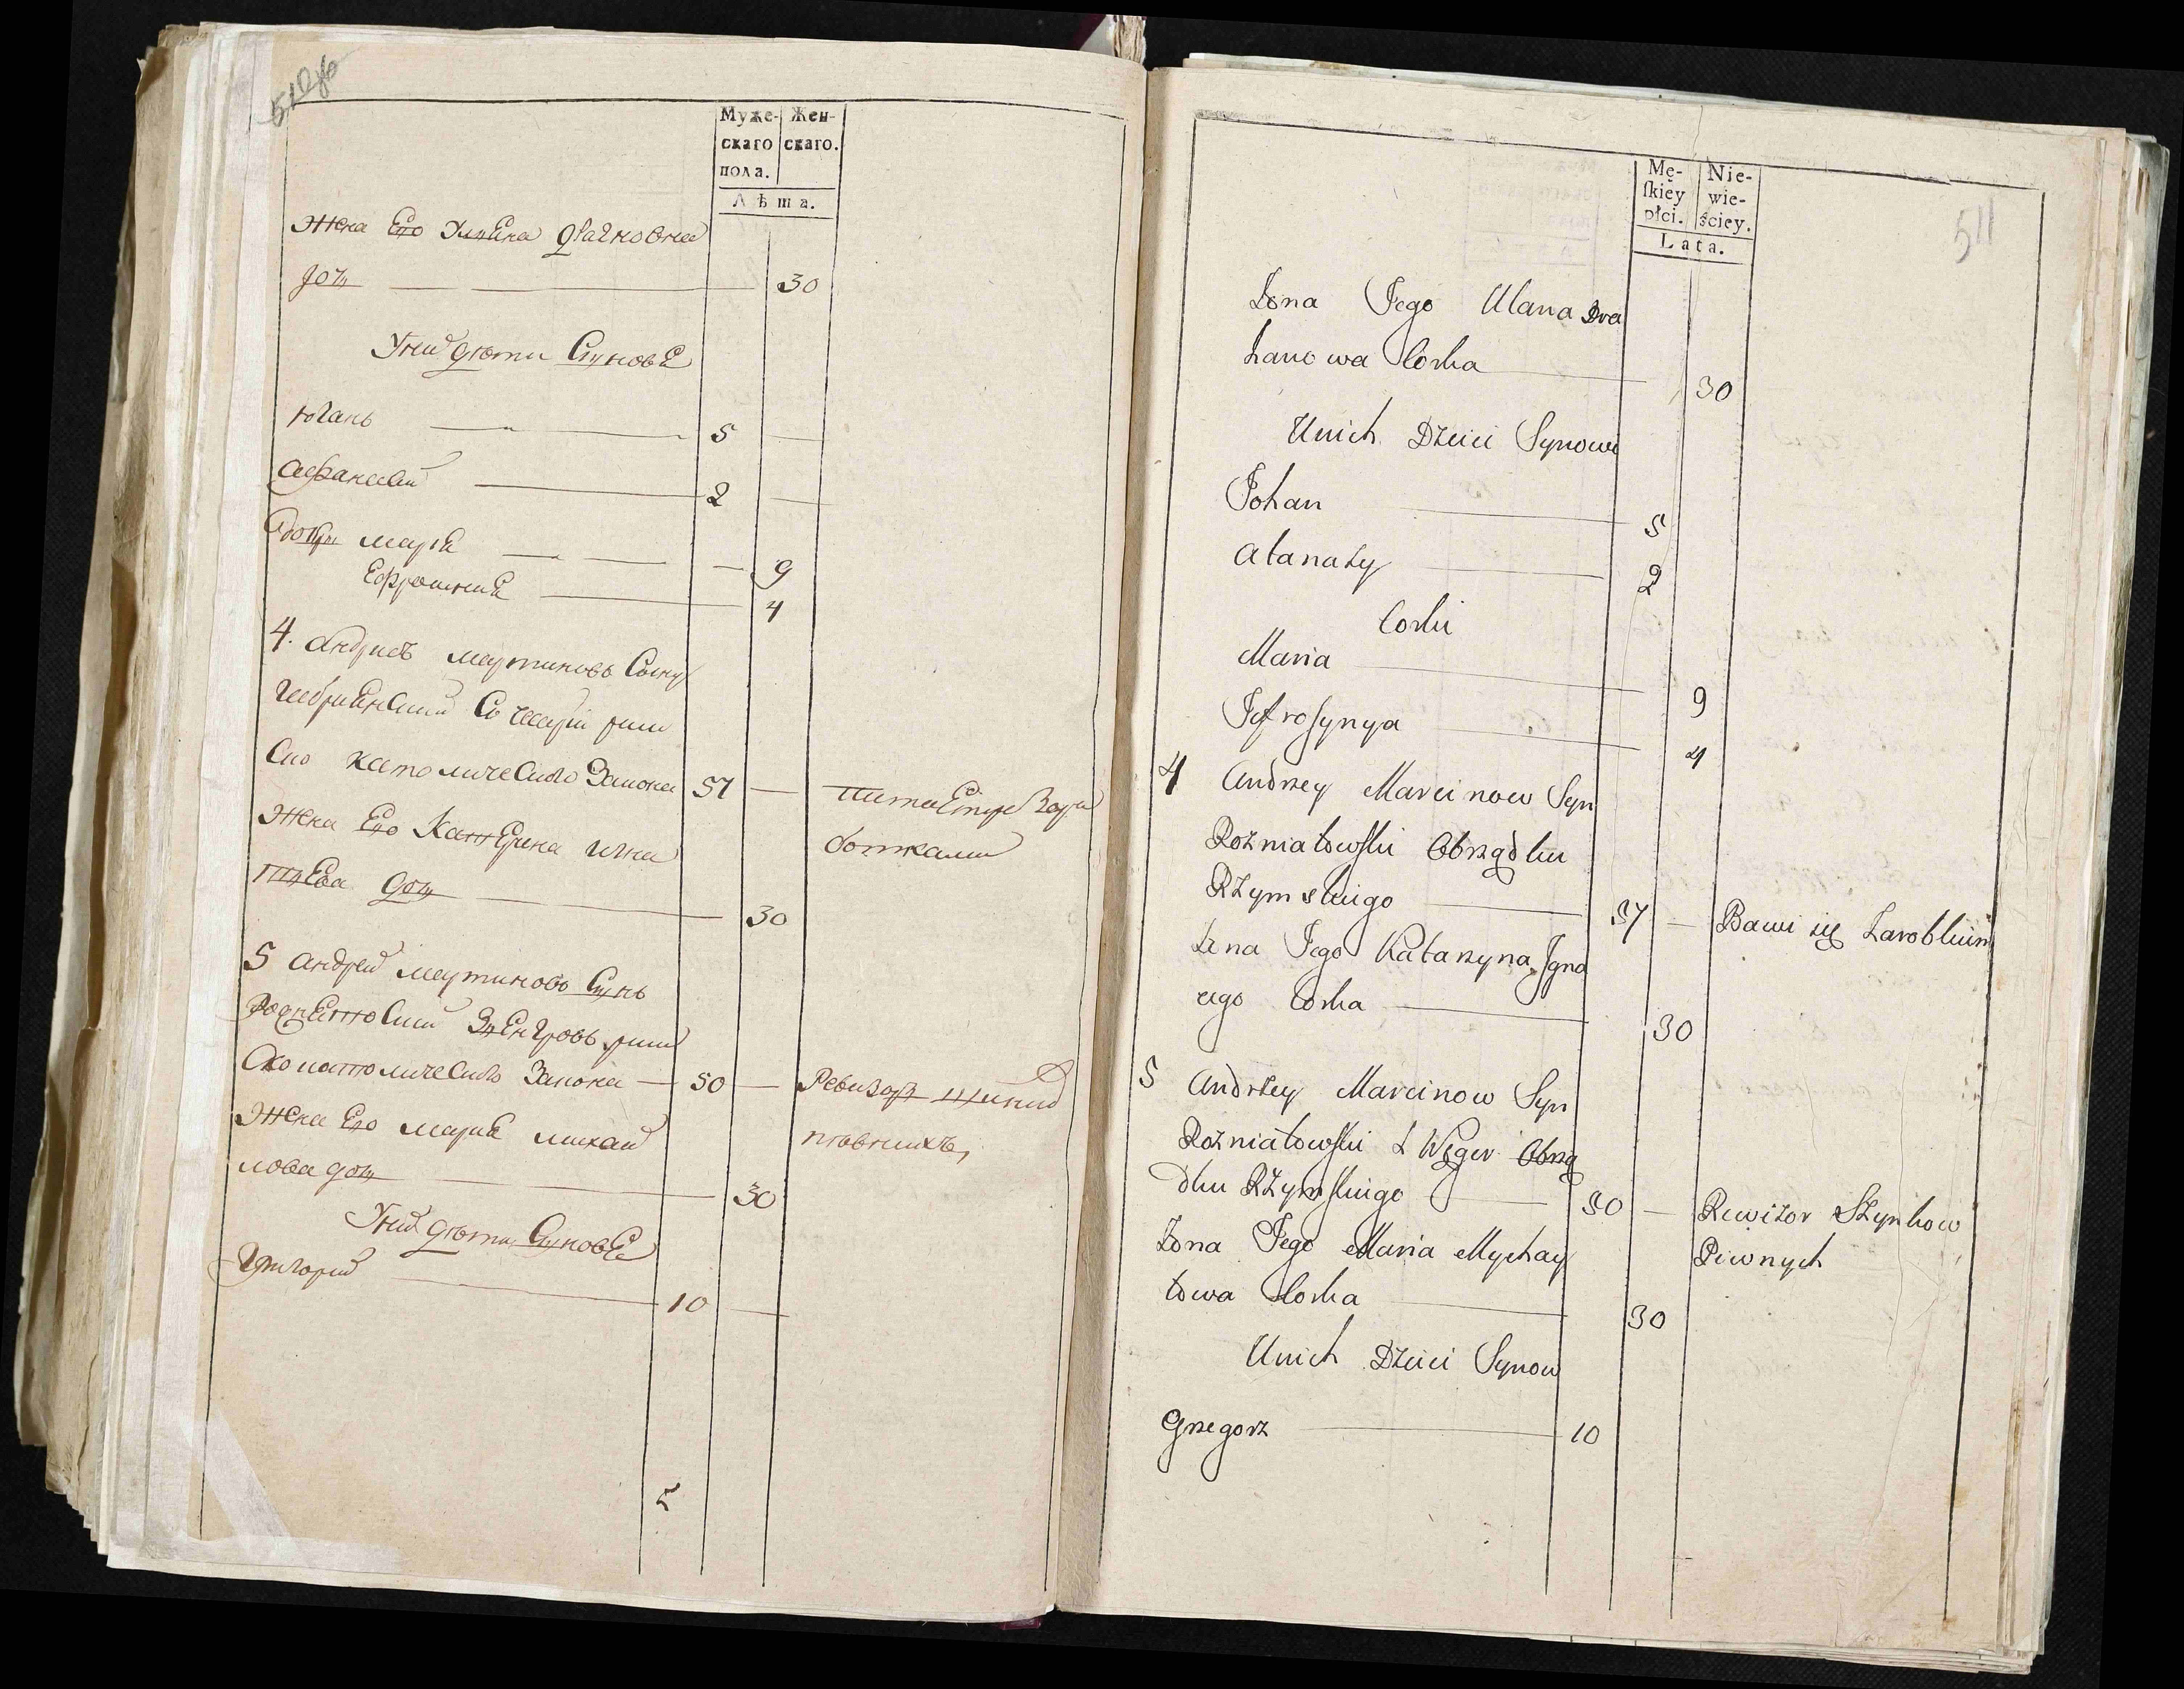 510об
Муже-
скаго
пола.
Жен-
скаго.
Лѣта.
Жена Его Уляна
дочь 30
У них дѣти Сынове
Юганъ 5
Афанасий 2
дочери Мария 9
Ефросиния 4
4. Андрей Мартиновъ Сынъ
рим
ско католического Закона 57 — питается зара
ботками
Жена Его Катерина Игна
тиева дочь 30
5 Андрей Мартиновъ Сынъ
рим
ско католического Закона — 50 — Ревизоръ шинков
пивнихъ,
Жена Его Мария Михай
лова дочь 30
У них дѣти Сынове
Григорий 10
5
511
Mę-
ſkiéy
płci.
Nie-
wie-
ściey.
Lata.
Żona Jego Ulana Dra
Corka 30
Unich Dzieci Synowe
Johan 5
Atanazy 2
Corki
Maria 9
Jefrosynya 4
4 Andrzey Marcinow Syn
Rozniatowski Obrządku
Rzymskiego 57 — Bawi się Zarobkiem
Zona Jego Katarzyna Igna
cego Corka 30
5 Andrzey Marcinow Syn
Rozniatowski z Węgier Obrzą
dku Rzymskiego 50 — Rewizor Szynkow
Piwnych
Zona Jego Maria Mychay
łowa Corka 30
Unich Dzieci Synow
Grzegorz 10